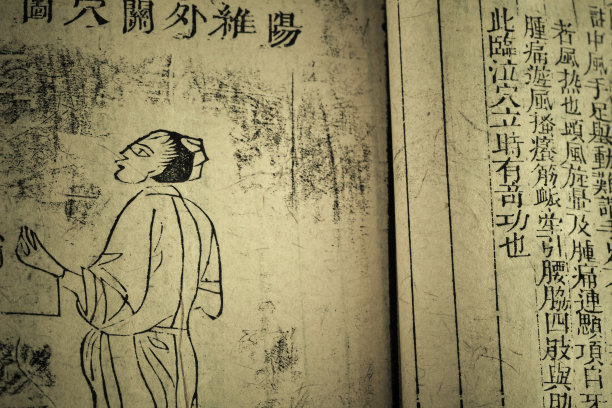 陽維外關穴圖
中風手足擧動難
者風热也頭風旋暈及腫痛連顋項目牙
腫痛遊風搔癢筋衇牽引腰脇四肢與肋
此臨泣穴立時有奇功也